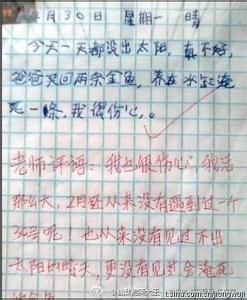 2月30日 星期一 晴
今天一天都没出太阳，真不好，
爸爸买回两条金鱼，养在水缸淹
死一条，我很伤心。
老师评语：我也很伤心 我活
那么大，2月还从来没有遇到过一个
30号呢！也从来没有见过不出
太阳的晴天，更没有见过会淹死